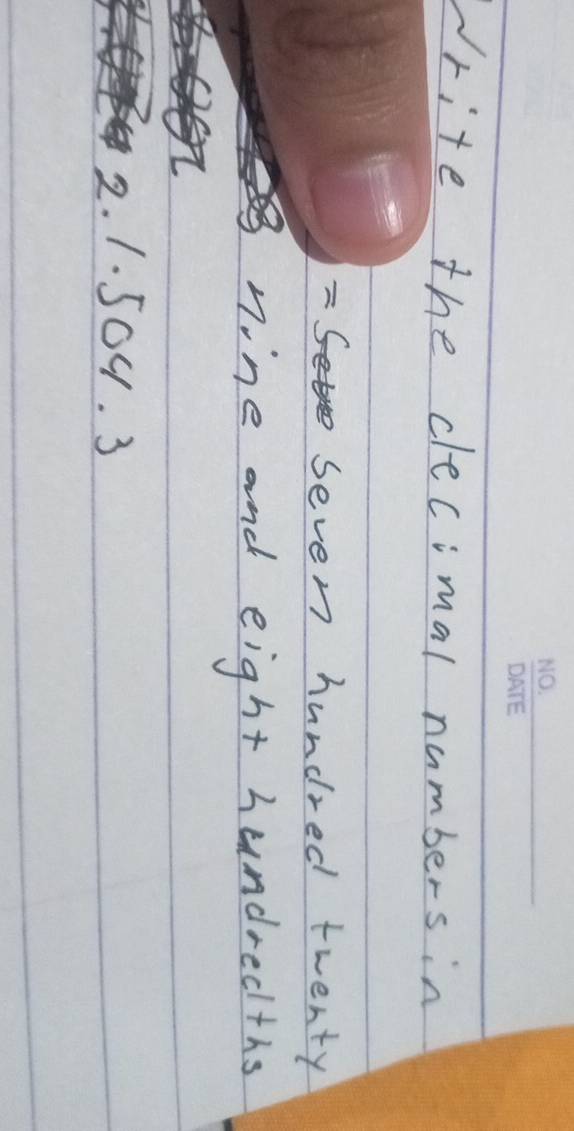 NO.
DATE
Write the decimal numbers in
= Seven hundred twenty
nine and eight hundredths
2. 1.504.3